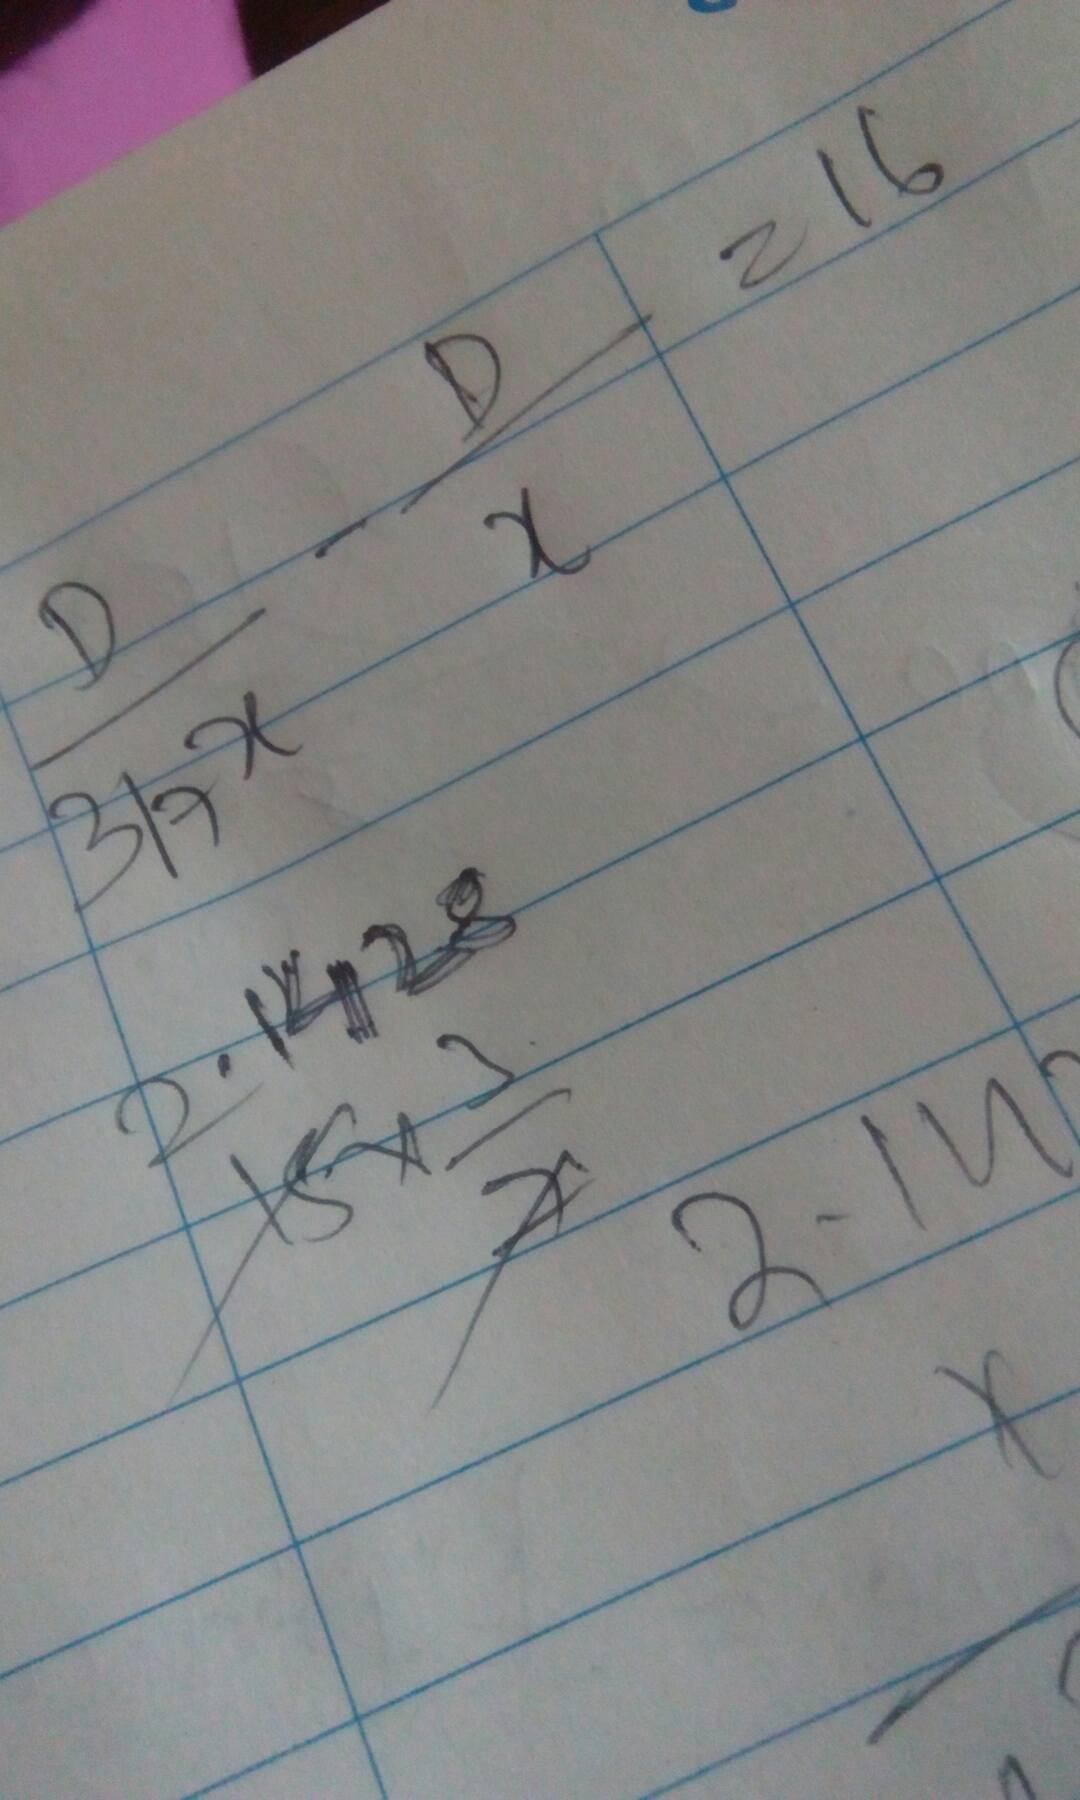 D/(3/7 x) - D/x = 16
2.1428
15 x 3/7
2.14
x